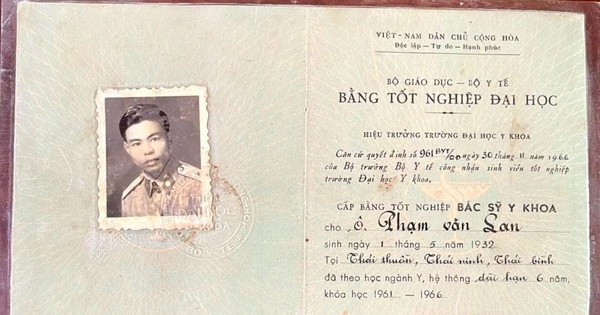 VIỆT-NAM DÂN CHỦ CỘNG HÒA
Độc lập — Tự do — Hạnh phúc
BỘ GIÁO DỤC — BỘ Y TẾ
BẰNG TỐT NGHIỆP ĐẠI HỌC
HIỆU TRƯỞNG TRƯỜNG ĐẠI HỌC Y KHOA
Căn cứ quyết định số 961 BYT/QĐ ngày 30 tháng 11 năm 1966
của Bộ trưởng Bộ Y tế công nhận sinh viên tốt nghiệp
trường Đại học Y khoa,
CẤP BẰNG TỐT NGHIỆP BÁC SỸ Y KHOA
cho Ô. Phạm văn Lan
sinh ngày 1 tháng 5 năm 1932
Tại Thái thuần, Thái ninh, Thái bình
đã theo học ngành Y, hệ thống dài hạn 6 năm,
khóa học 1961 — 1966